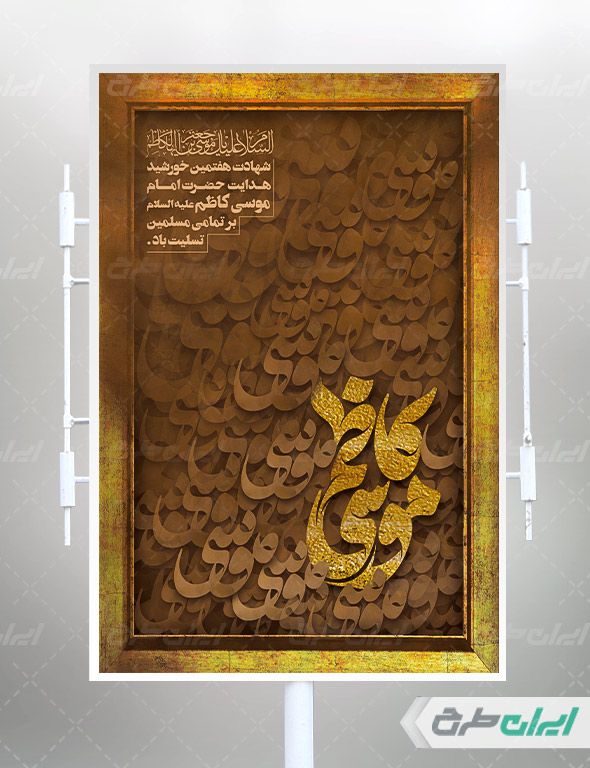 السلام علیک یا موسی بن جعفر الکاظم
شهادت هفتمین خورشید
هدایت حضرت امام
موسی کاظم علیه السلام
بر تمامی مسلمین
تسلیت باد.
موسی کاظم
ایران طرح